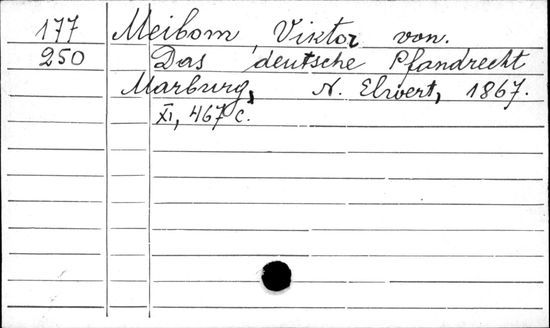 177 Meibom, Viktor von.
250 Das deutsche Pfandrecht
Marburg, N. Elwert, 1867.
XI, 467 c.